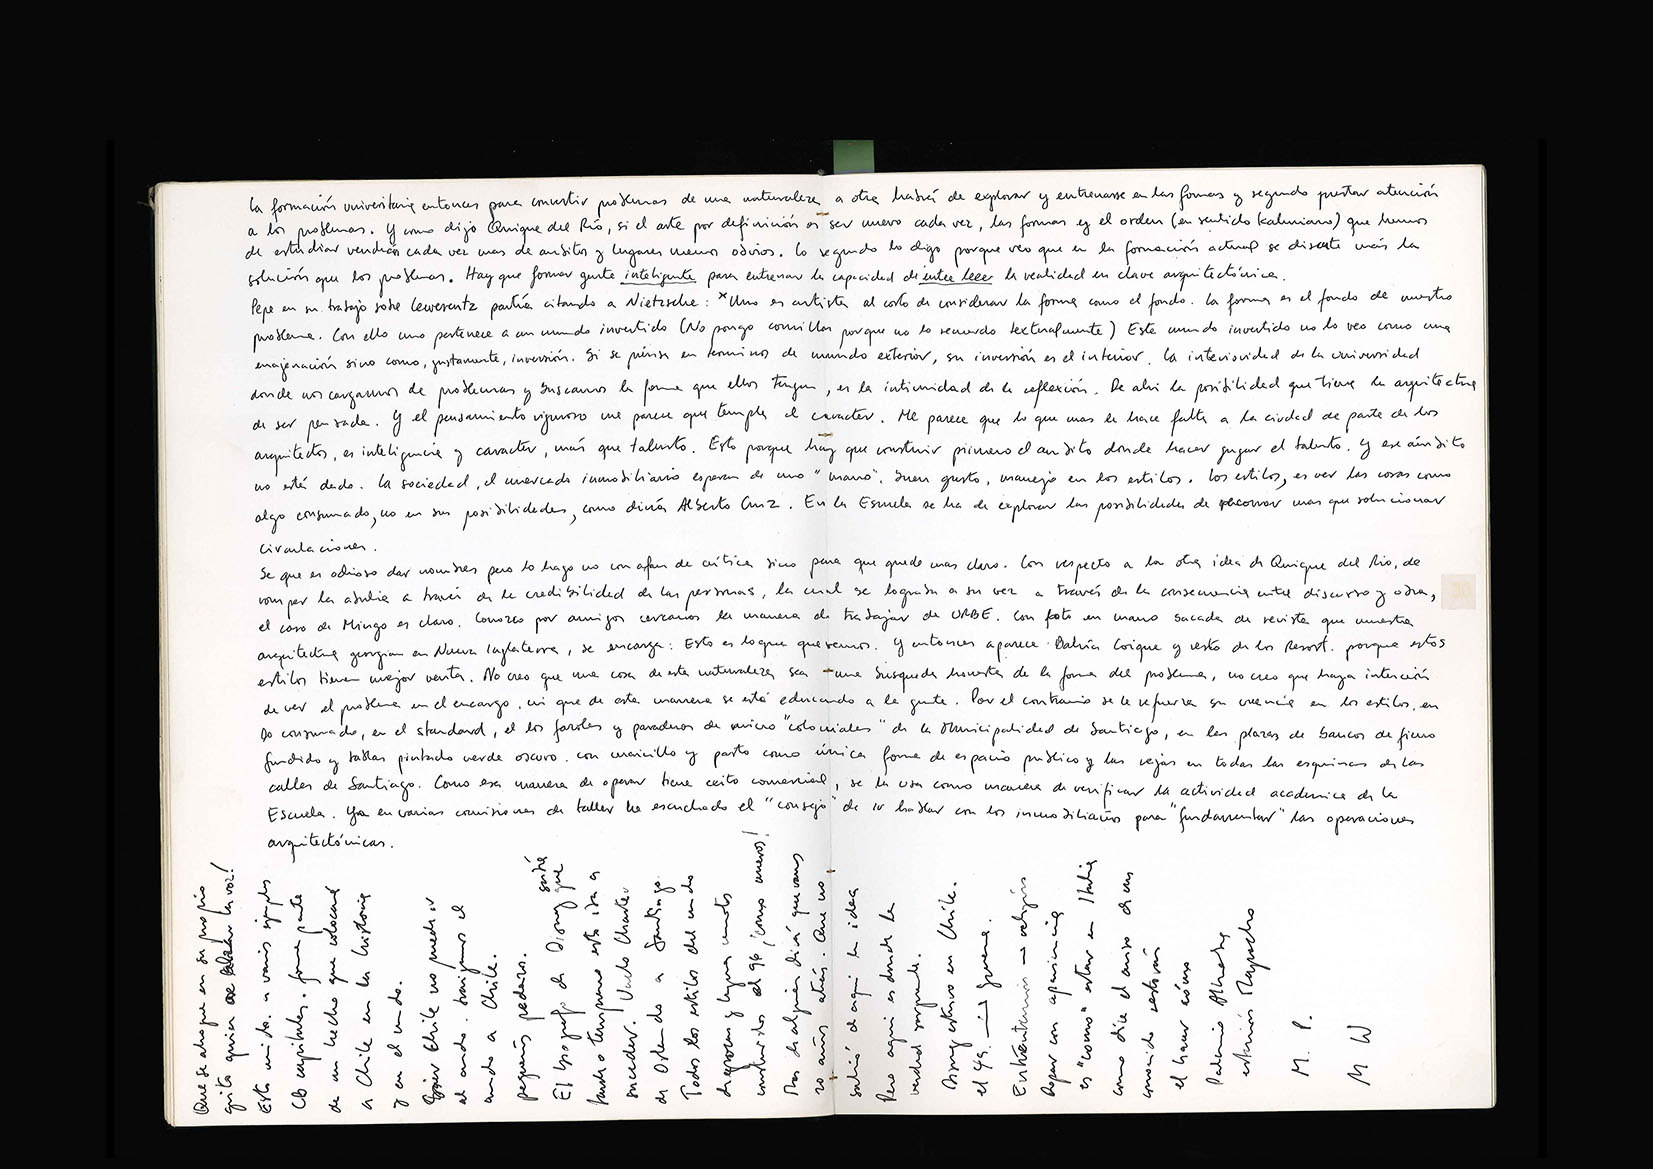 la formación universitaria entonces para convertir problemas de una naturaleza a otra habrá de explorar y entrenarse en las formas y segundo prestar atención
a los problemas. Y como dijo Quique del Río, si el arte por definición es ser nuevo cada vez, las formas y el orden (en sentido kahniano) que hemos
de estudiar vendrán cada vez mas de ambitos y lugares menos obvios. Lo segundo lo digo porque veo que en la formación actual se discute más la
solución que los problemas. Hay que formar gente inteligente para entrenar la capacidad de entre leer la realidad en clave arquitectónica.
Pepe en su trabajo sobre Lewerentz partía citando a Nietzsche: "Uno es artista al costo de considerar la forma como el fondo. La forma es el fondo de nuestro
problema. Con ello uno pertenece a un mundo invertido (No pongo comillas porque no lo recuerdo textualmente) Este mundo invertido no lo veo como una
enajenación sino como, justamente, inversión. Si se piensa en terminos de mundo exterior, su inversión es el interior. La interioridad de la universidad
donde nos cargamos de problemas y buscamos la forma que ellos tengan, es la intimidad de la reflexión. De ahi la posibilidad que tiene la arquitectura
de ser pensada. Y el pensamiento riguroso me parece que templa el caracter. Me parece que lo que mas le hace falta a la ciudad de parte de los
arquitectos, es inteligencia y caracter, más que talento. Esto porque hay que construir primero el ambito donde hacer jugar el talento. Y ese ámbito
no está dado. La sociedad, el mercado inmobiliario esperan de uno "mano". buen gusto, manejo en los estilos. Los estilos, es ver las cosas como
algo consumado, no en sus posibilidades, como diría Alberto Cruz. En la Escuela se ha de explorar las posibilidades de recorrer mas que solucionar
circulaciones.
Se que es odioso dar nombres pero lo hago no con afan de crítica sino para que quede mas claro. Con respecto a la otra idea de Quique del Rio, de
romper la abulia a través de la credibilidad de las personas, la cual se lograba a su vez a través de la consecuencia entre discurso y obra,
el caso de Mingo es claro. Conozco por amigos cercanos la manera de trabajar de URBE. Con foto en mano sacada de revista que muestra
arquitectura georgian en Nueva Inglaterra, se encarga: Esto es lo que queremos. Y entonces aparece Bahía Coique y resto de los Resort. porque estos
estilos tienen mejor venta. No creo que una cosa de esta naturaleza sea una busqueda honesta de la forma del problema, no creo que haya intención
de ver el problema en el encargo, ni que de esta manera se está educando a la gente. Por el contrario se le refuerza su creencia en los estilos, en
lo consumado, en el standard, el los faroles y paraderos de micro "coloniales" de la Municipalidad de Santiago, en las plazas de bancos de fierro
fundido y tablas pintado verde oscuro. con maicillo y pasto como única forma de espacio público y las rejas en todas las esquinas de las
calles de Santiago. Como esa manera de operar tiene exito comercial, se la usa como manera de verificar la actividad academica de la
Escuela. Ya en varias comisiones de taller he escuchado el "consejo" de ir hablar con los inmobiliarios para "fundamentar" las operaciones
arquitectónicas.
Que se ahogue en su propio
grito quien alzar la voz!
Este unido a varios ejemplos
capitales. forma parte
de un hecho que colocará
a Chile en la historia
y en el mundo.
Chile no puede ir
al mundo. traigamos el
mundo a Chile.
pequeños pedazos.
El biógrafo de Disney sobre que
tarde o temprano esto iba a
suceder. Uncle Charter
de Orlando a Santiago.
Todos los estilos del mundo
diaporamas y legua montes
construidos el 96 ¡como nuevos!
Mas de alguien dirá que vamos
20 años atrás. Que no
salió de aqui la idea
Pero aqui es donde la
verdad sorprende.
Disney estuvo en Chile.
el 49.
Entretenimiento religión
Pagar con apariencia
es "como" estar en Italia
como dice el aviso de un
conocido
el hacer cómo
Palermo Alhambra
Mapocho
M. P.
M W